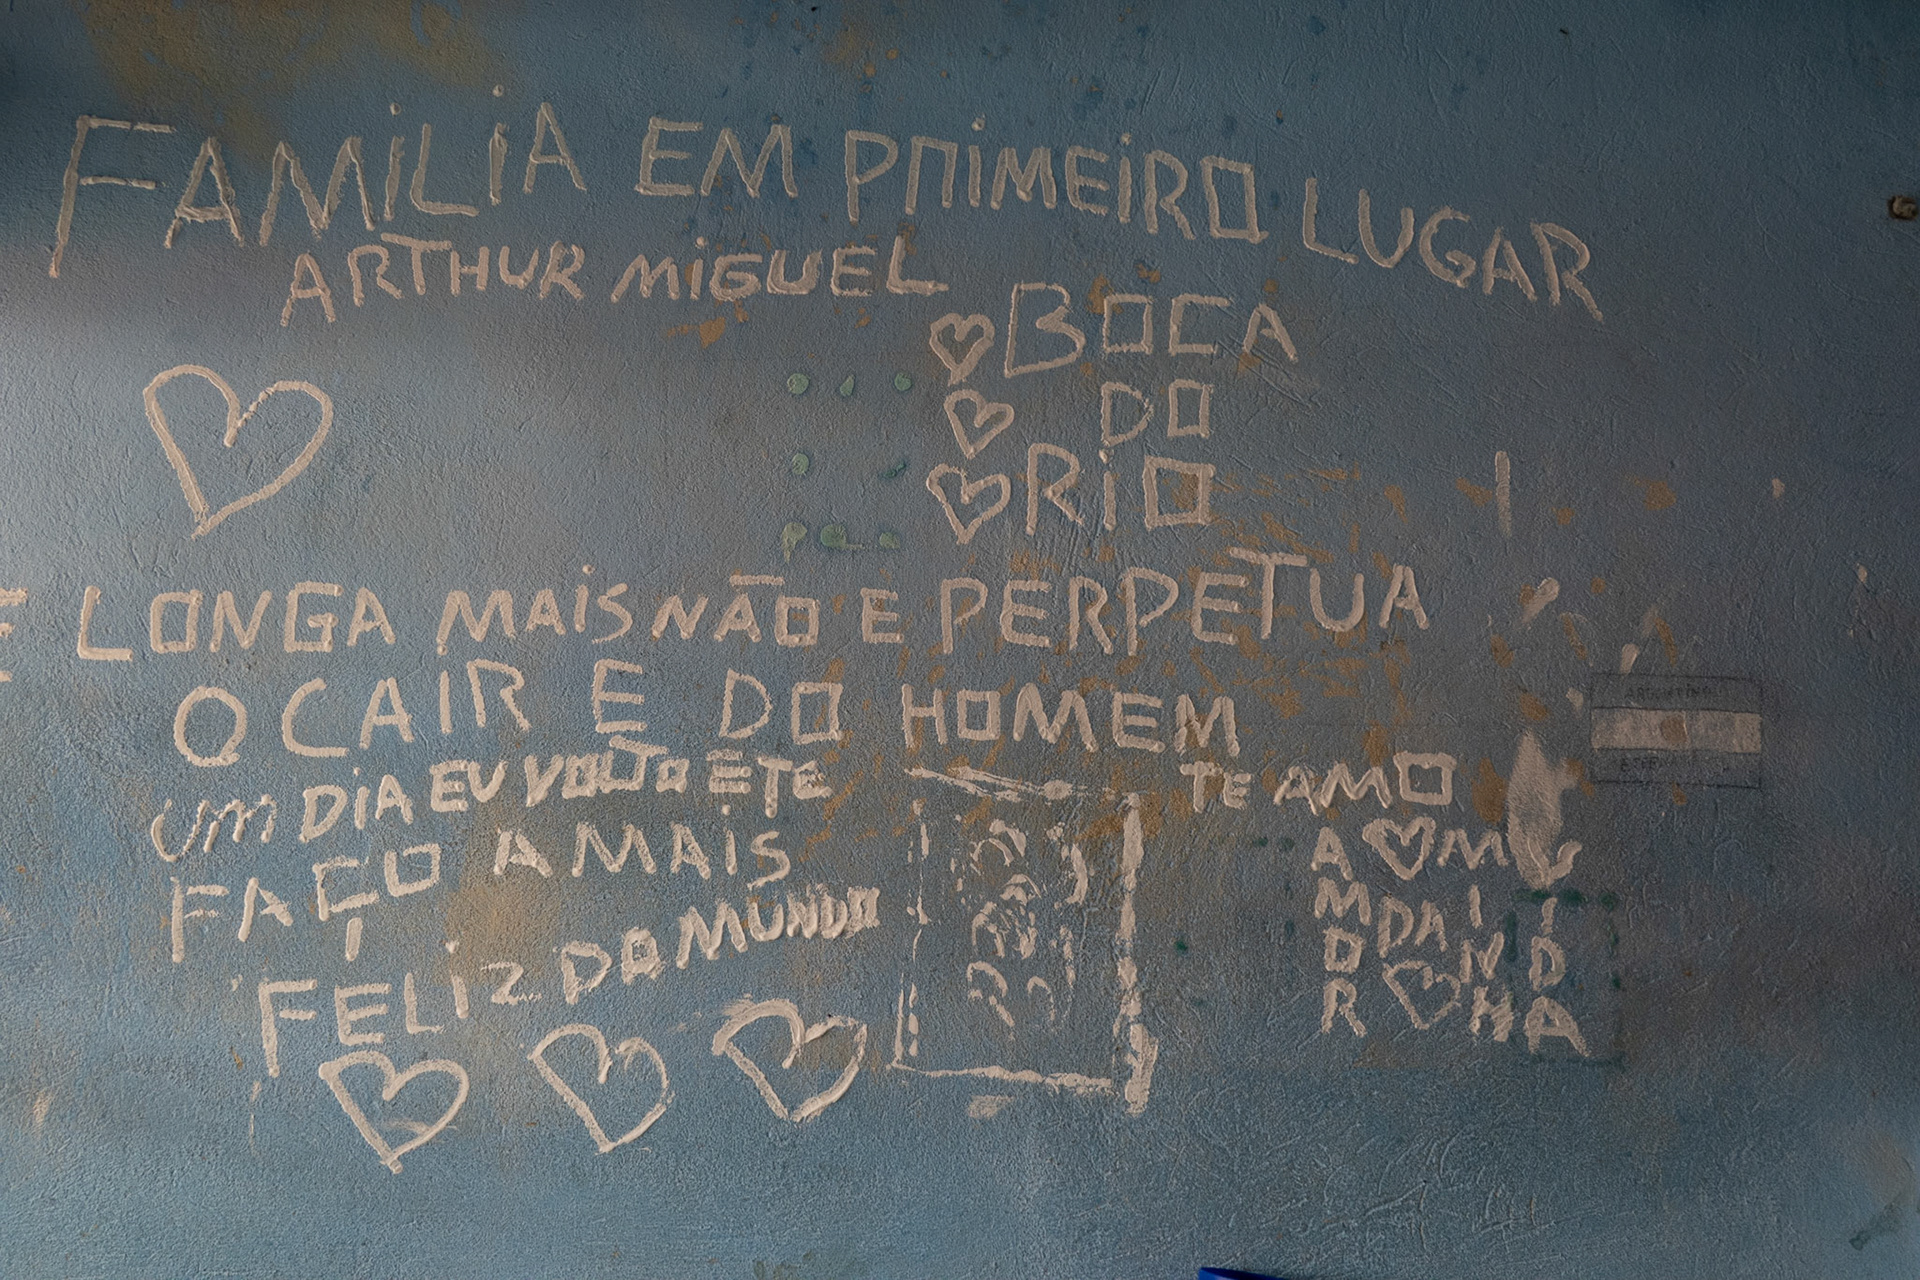 FAMiLiA EM PRiMEiRO LUGAR
ARTHUR MiGUEL
BOCA
DO
RiO
E LONGA MAiS NÃO E PERPETUA
O CAIR E DO HOMEM
UM DiA EU VOLTO E TE
FAÇO A MAiS
FELiZ DO MUNDO
TE AMO
AMOR
ARGENTINA